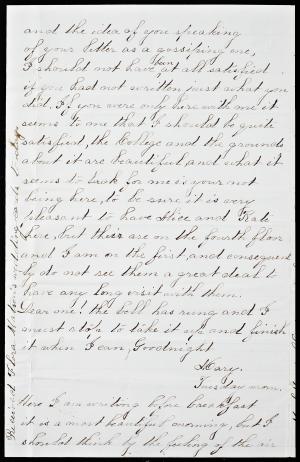 and the idea of you speaking
of your letter as a gossiping one,
I should not have been at all satisfied
if you had not written just what you
did. If you were only here with me it
seems to me that I should be quite
satisfied, the College and the grounds
about it are beautiful, and what it
seems to lack for me is your not
being here, to be sure it is very
pleasant to have Alice and Kate
here, but their are on the fourth floor
and I am on the first, and consequent
ly do not see them a great deal to
have any long visit with them.
Dear me! the bell has rung and I
must stop to take it up and finish
it when I can, Goodnight
Mary.
Tuesday morn.
Here I am writing before breakfast
it is a most beautiful morning, but I
should think by the feeling of the air